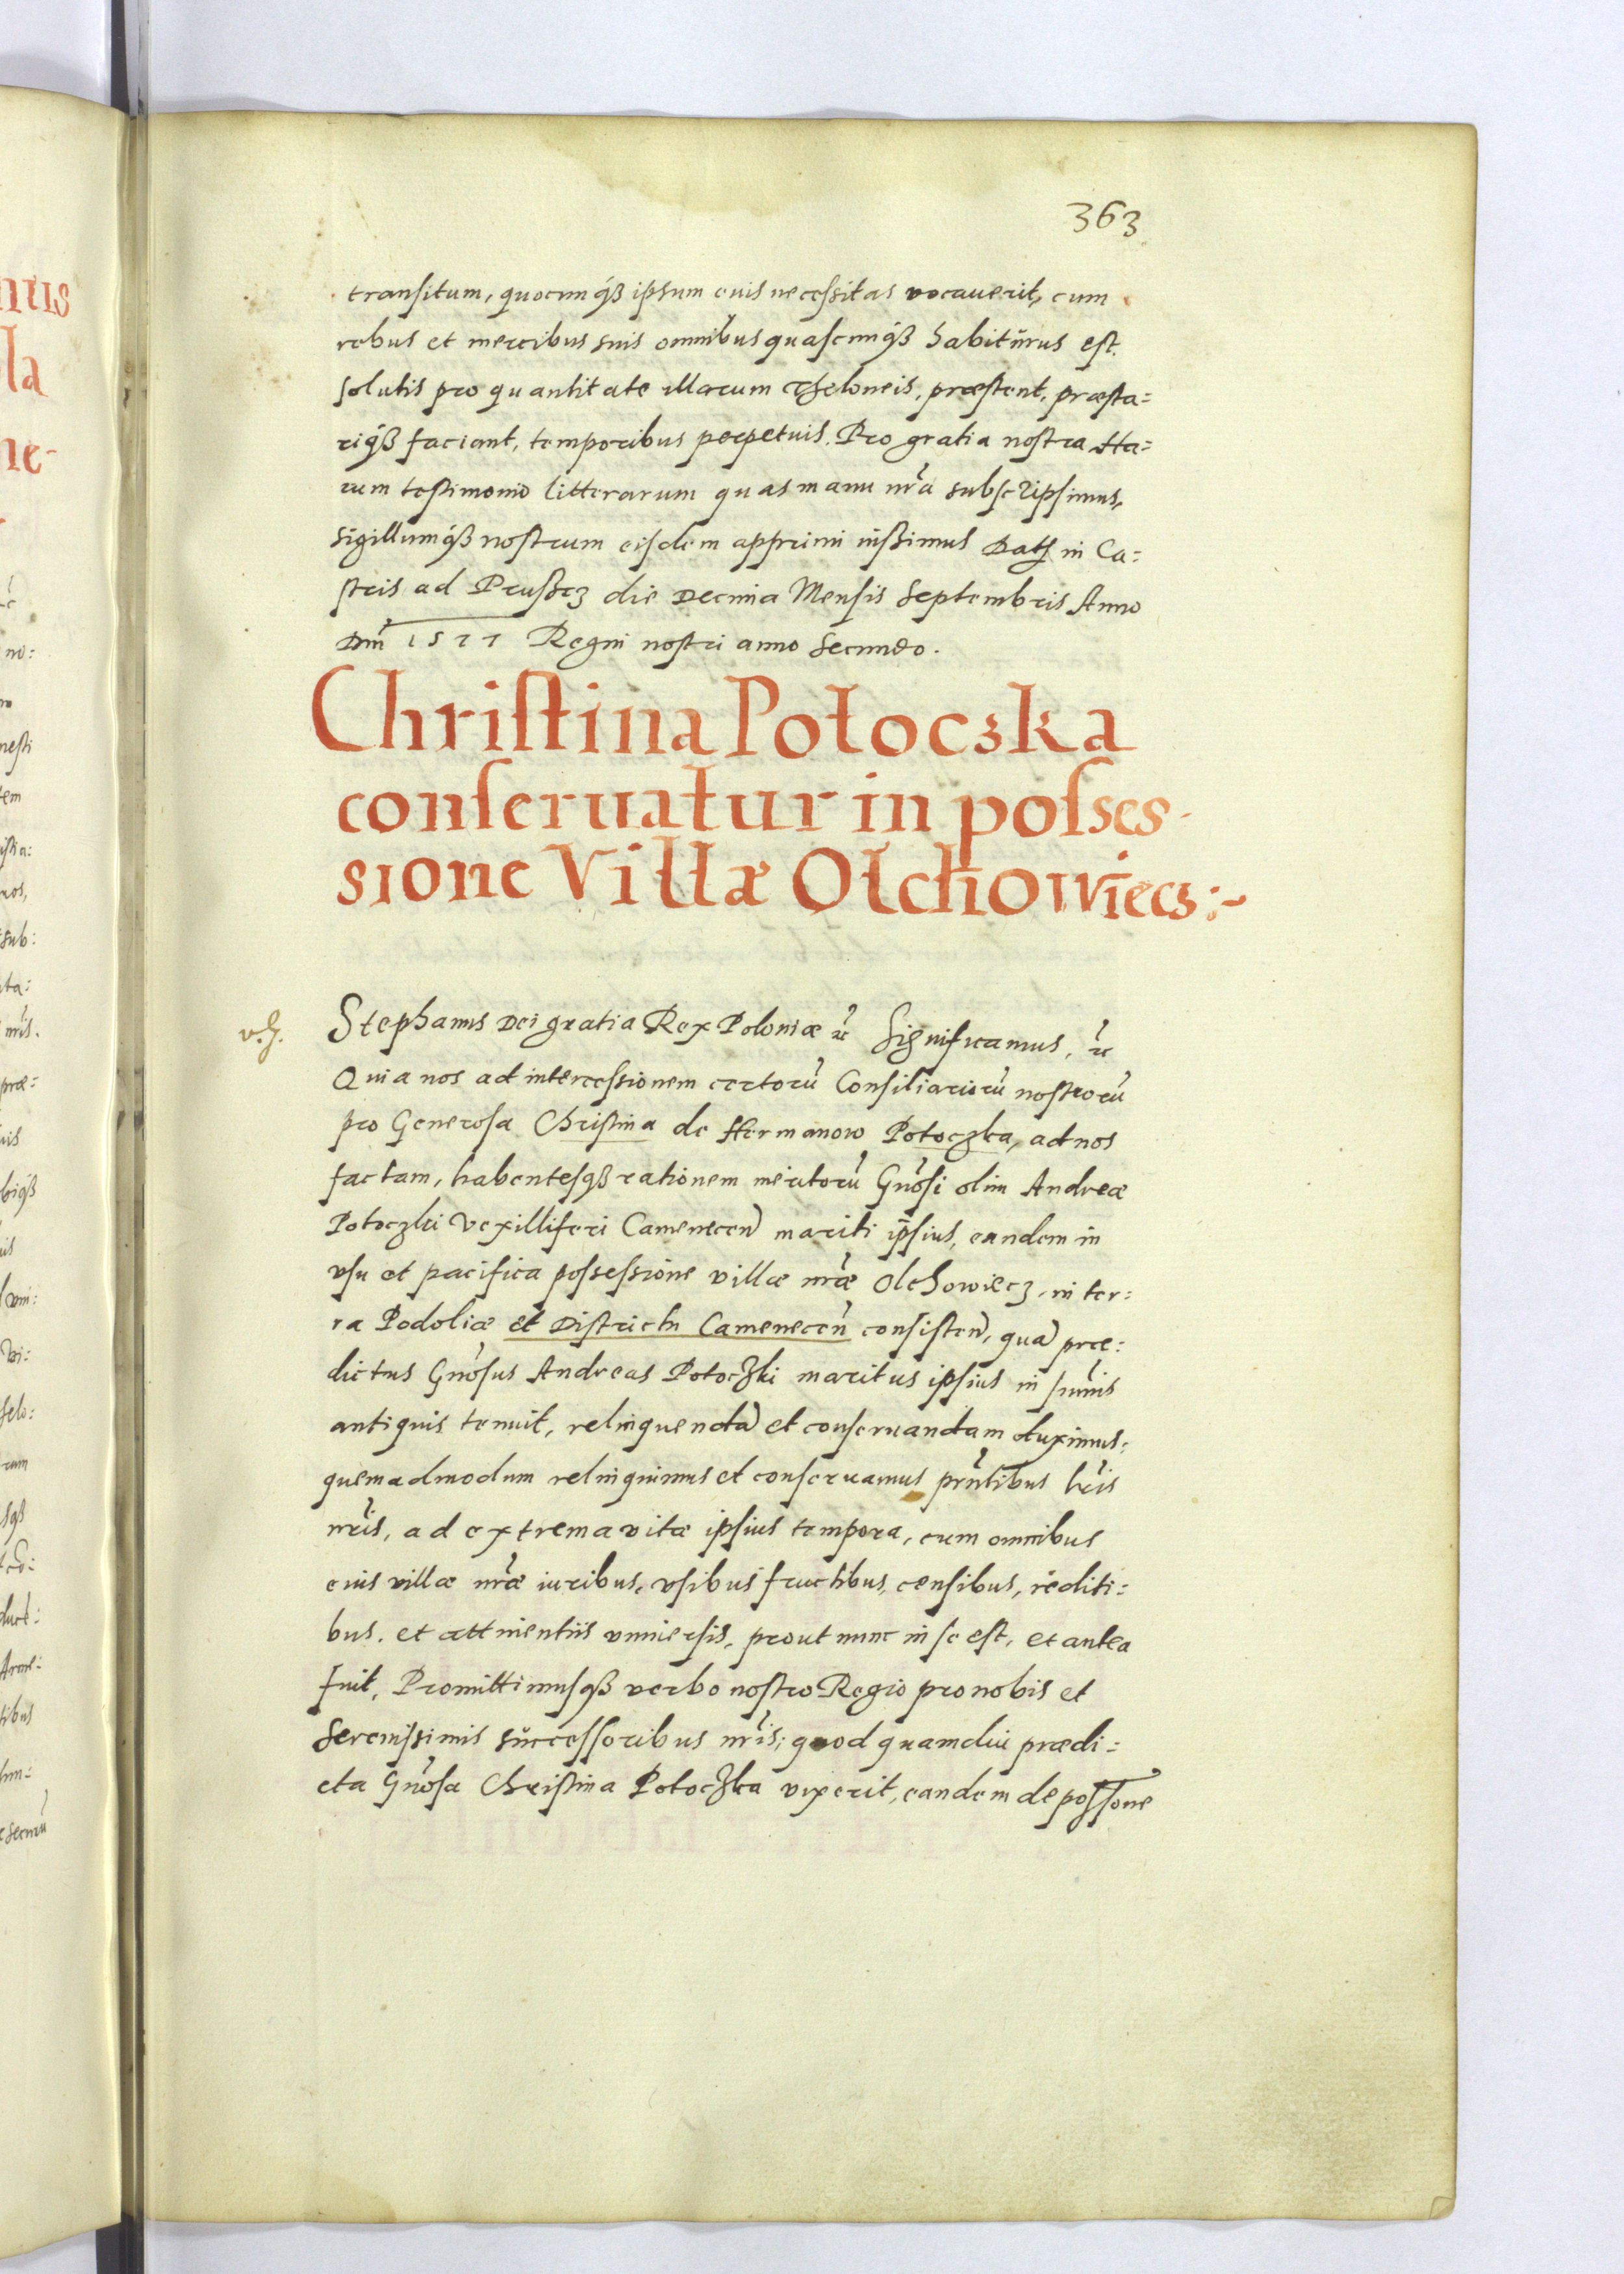 363
transitum, quocunqß ipsum euis necessitas vocauerit, cum
rebus et mercibus suis omnibus quascunqß habiturus est.
solutis pro quantitate illarum theloneis, præstent, præsta=
riqß faciant, temporibus perpetuis. Pro gratia nostra Ha=
rum testimonio litterarum quas manu nrã subscripsimus,
sigillumqß nostrum eisdem apprimi iussimus Dat in Ca=
stris ad Prusscz die Decima Mensis Septembris Anno
Dnĩ 1577 Regni nostri anno Secundo.
Christina Potoczka
conseruatur in posses-
sione Villæ Olchowiecz:-
v. g.
Stephanus Dei gratia Rex Poloniæ ꝛc Significamus, ꝛc
Quia nos ad intercessionem certorũ Consiliariorũ nostrorũ
pro Generosa Christina de Hermanow Potoczka, ad nos
factam, habentesqß rationem meritorũ Gnõsi olim Andreæ
Potoczki Vexilliferi Camenecen̄ mariti ipsius, eandem in
vsu et pacifica possessione villæ nrãe Olchowiecz, in ter=
ra Podoliæ et Districtu Camenecen̄ consisten̄, quā præ=
dictus Gnõsus Andreas Potoczki maritus ipsius in sum̃is
antiquis tenuit, relinquendā et conseruandam duximus,
quemadmodum relinquimus et conseruamus pñtibus lris
nris, ad extrema vitæ ipsius tempora, cum omnibus
euis villæ nrãe iuribus, vsibus fructibus, censibus, rediti=
bus. et attinentiis vniuersis, prout nunc in se est, et antea
fuit, Promittimusqß verbo nostro Regio pro nobis et
Serenissimis successoribus nris; quod quamdiu prædi=
cta Gnõsa Christina Potoczka vixerit, eandem de possone